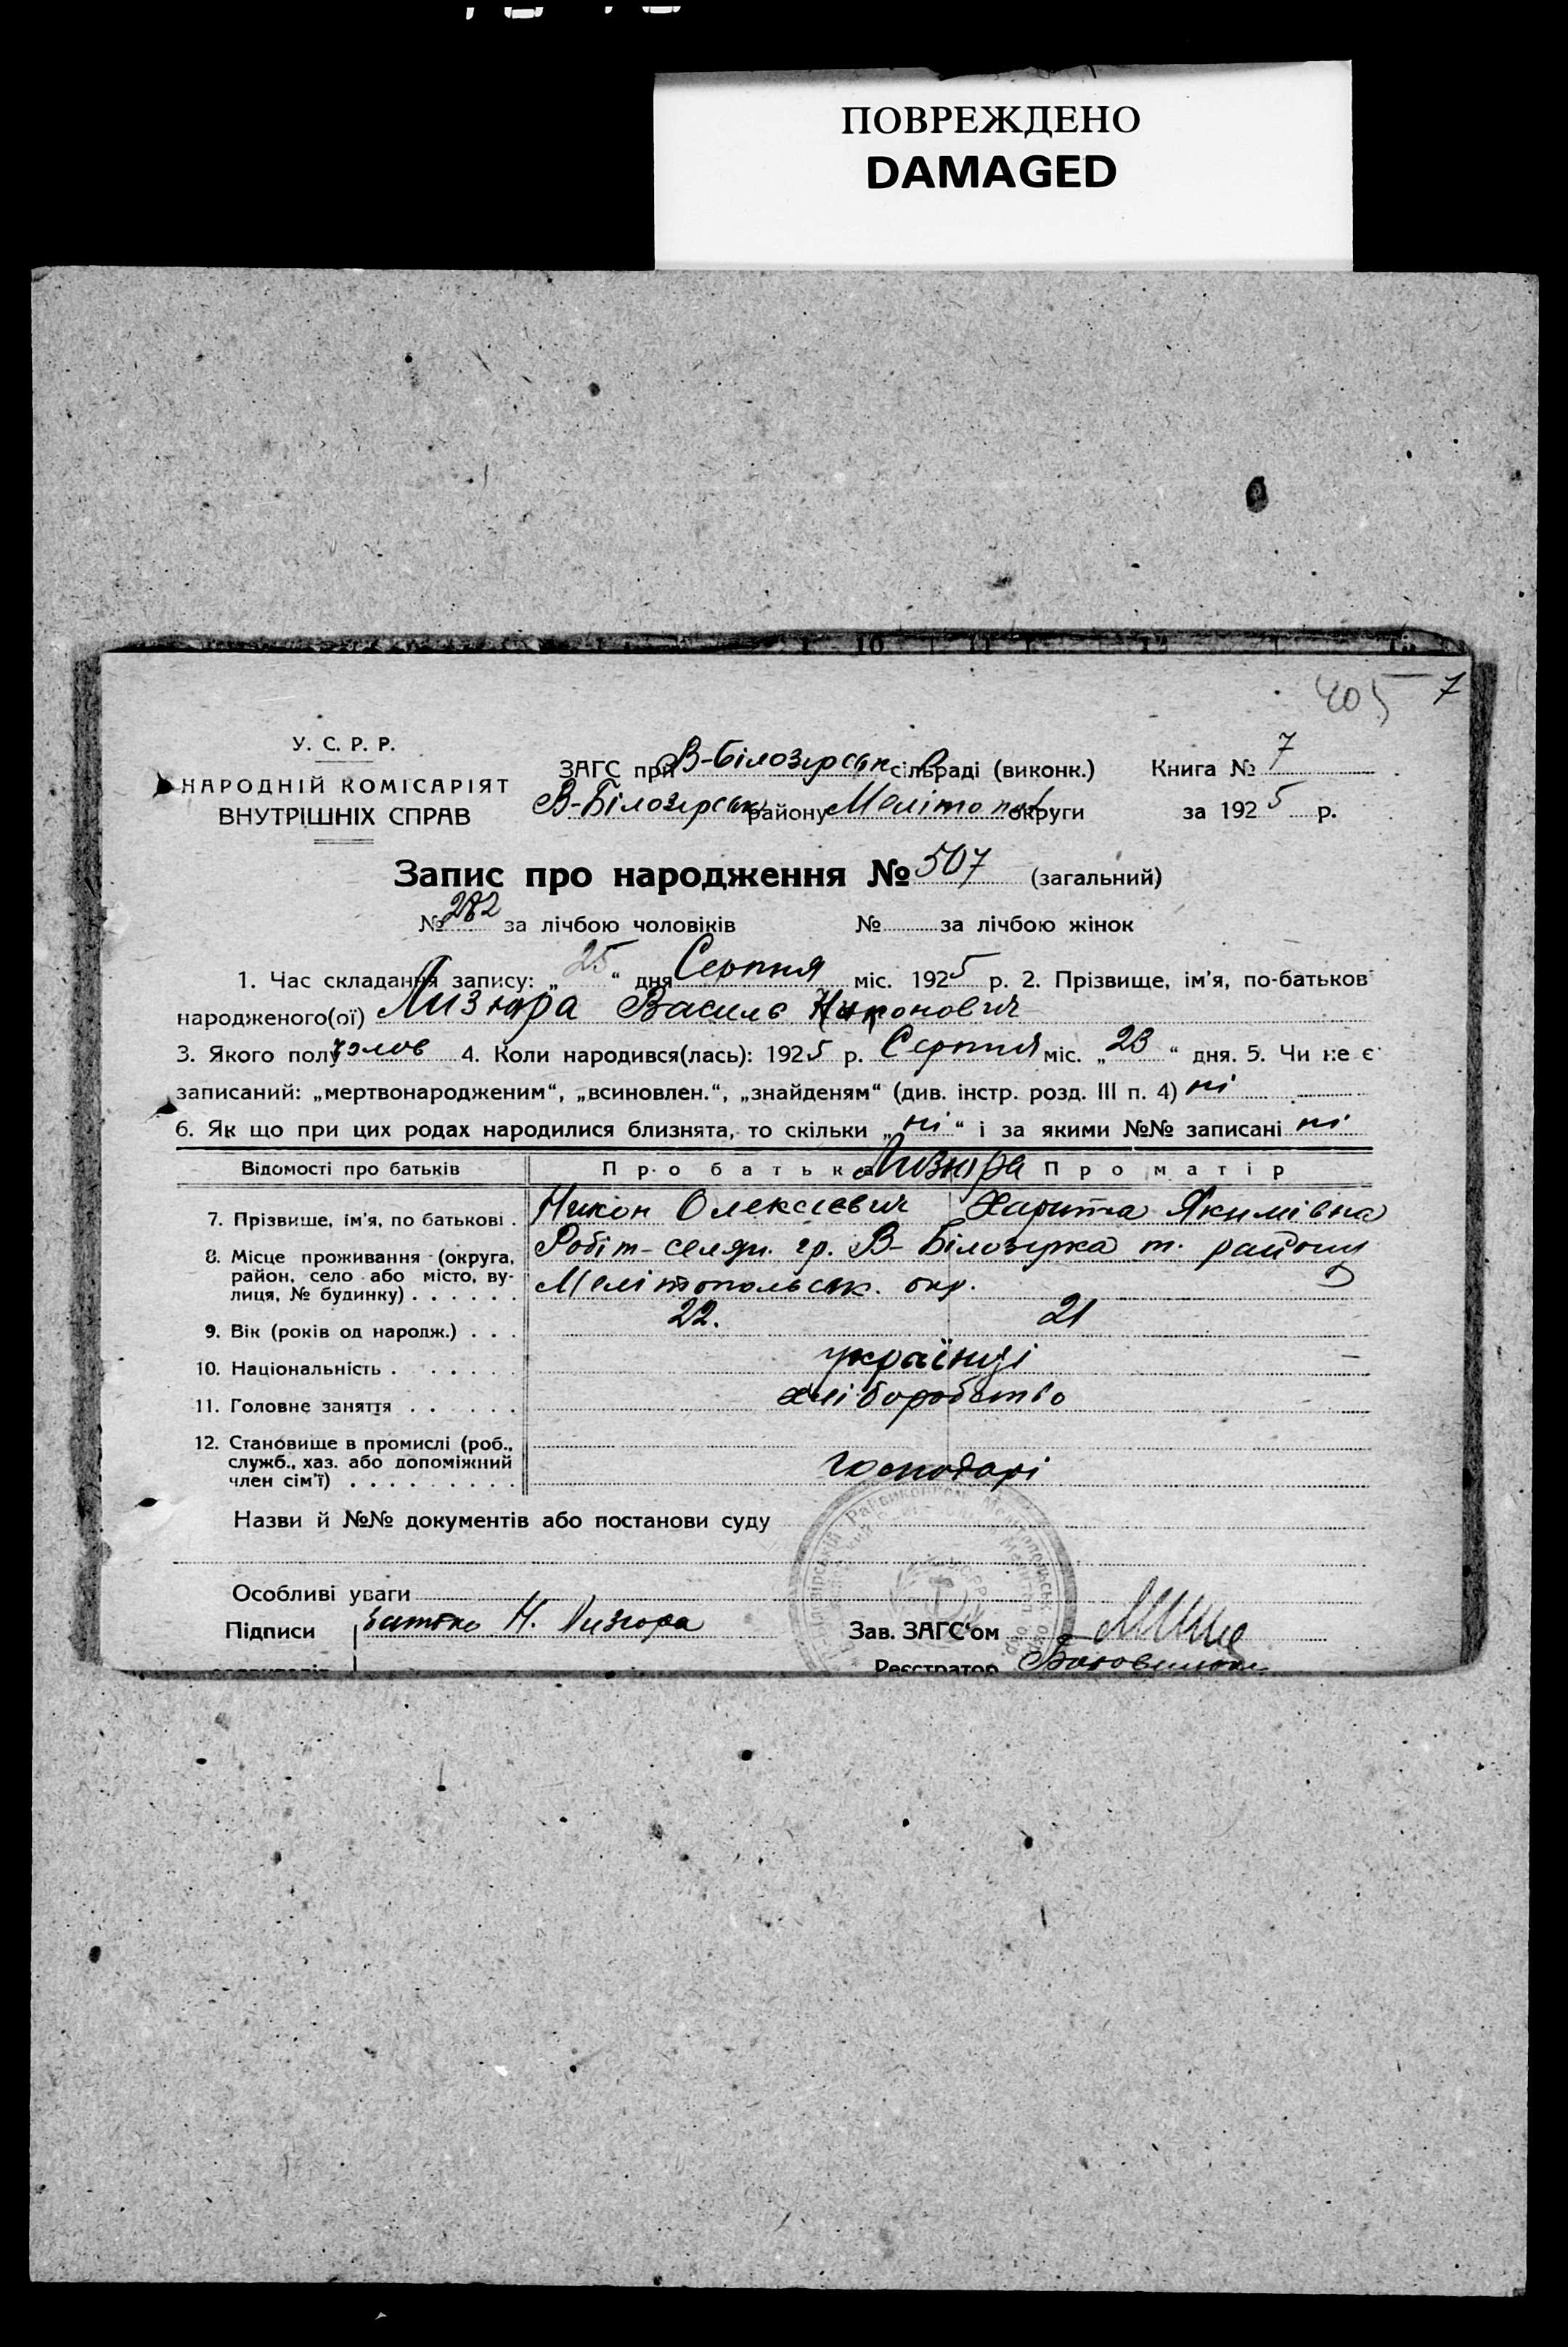 ПОВРЕЖДЕНО
DAMAGED
405 7
У. С. Р. Р.
НАРОДНІЙ КОМІСАРІЯТ
ВНУТРІШНІХ СПРАВ
ЗАГС при В-Білозірськ сільраді (виконк.) Книга № 7
В-Білозірськ району Мелітоп округи за 1925 р.
Запис про народження № 507 (загальний)
№ 282 за лічбою чоловіків № за лічбою жінок
1. Час складання запису: „25“ дня Серпня міс. 1925 р. 2. Прізвище, ім'я, по-батьков
народженого(ої) Лизюра Василь Никонович
3. Якого полу чолов 4. Коли народився(лась): 1925 р. Серпня міс. „23“ дня. 5. Чи не є
записаний: „мертвонародженим“, „всиновлен.“, „знайденям“ (див. інстр. розд. III п. 4) ні
6. Як що при цих родах народилися близнята, то скільки „ні“ і за якими №№ записані ні
Відомості про батьків Про батька Лизюра Про матір
7. Прізвище, ім'я, по батькові . Никон Олексієвич Харита Якимівна
8. Місце проживання (округа, Робіт-селян. гр. В-Білозірка т. району
район, село або місто, ву-
лиця, № будинку) . . . . . . Мелітопольськ. окр.
9. Вік (років од народж.) . . . 22. 21
10. Національність . . . . . . українці
11. Головне заняття . . . . . хліборобство
12. Становище в промислі (роб.,
служб., хаз. або допоміжний
член сім'ї) . . . . . . . . . господарі
Назви й №№ документів або постанови суду
Особливі уваги
Підписи батько Н. Лизюра Зав. ЗАГС'ом
Реєстратор